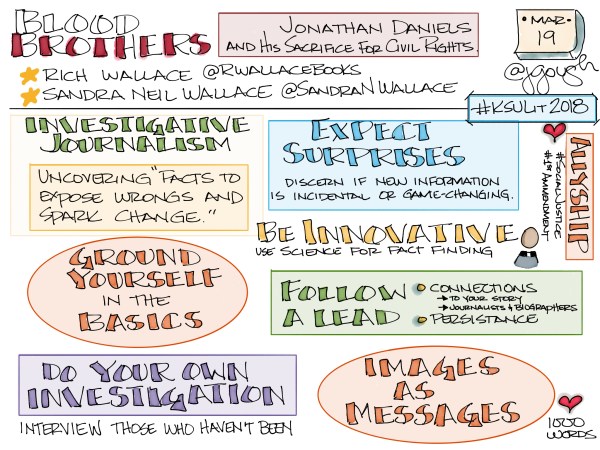 BLOOD
BROTHERS
JONATHAN DANIELS
AND HIS SACRIFICE FOR CIVIL RIGHTS.
MAR.
19
@jgough
RICH WALLACE @RWALLACEBOOKS
SANDRA NEIL WALLACE @SANDRANWALLACE
#KSULIT2018
INVESTIGATIVE
JOURNALISM
UNCOVERING "FACTS TO
EXPOSE WRONGS AND
SPARK CHANGE."
EXPECT
SURPRISES
DISCERN IF NEW INFORMATION
IS INCIDENTAL OR GAME-CHANGING.
ALLYSHIP
#SOCIALJUSTICE
#1ST AMMENDMENT
BE INNOVATIVE
USE SCIENCE FOR FACT FINDING
GROUND
YOURSELF
IN THE
BASICS
FOLLOW
A LEAD
CONNECTIONS
→ TO YOUR STORY
→ JOURNALISTS & BIOGRAPHERS
PERSISTANCE
DO YOUR OWN
INVESTIGATION
INTERVIEW THOSE WHO HAVEN'T BEEN
IMAGES
AS
MESSAGES
1000
WORDS